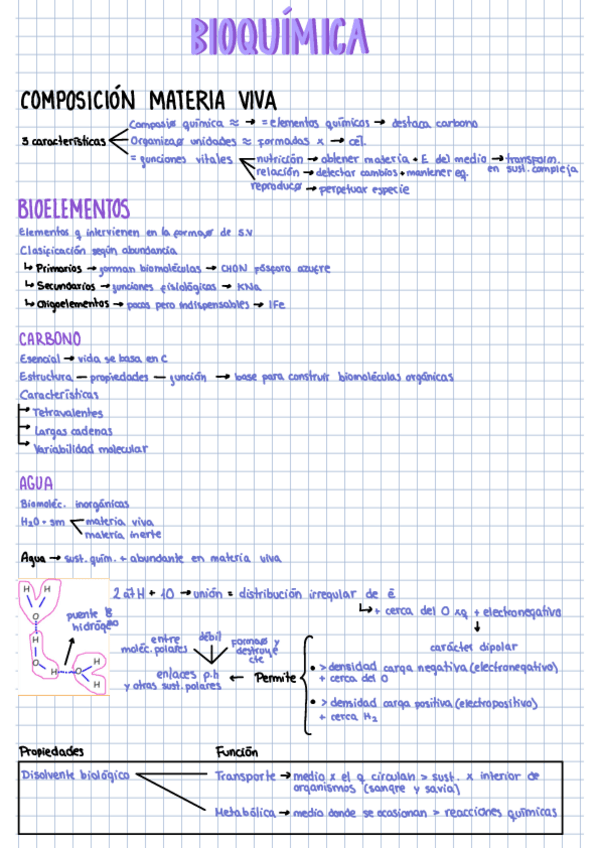 BIOQUÍMICA
COMPOSICIÓN MATERIA VIVA
3 características
Composic química ≈ → = elementos químicos → destaca carbono
Organizac unidades ≈ formadas x → cél.
= funciones vitales
nutrición → obtener materia + E del medio → transform. en sust. compleja
relación → detectar cambios + mantener eq.
reproducc → perpetuar especie
BIOELEMENTOS
Elementos q intervienen en la formac de s.v
Clasificación según abundancia
↳ Primarios → forman biomoléculas → CHON fósforo azufre
↳ Secundarios → funciones fisiológicas → KNa
↳ Oligoelementos → pocos pero indispensables → IFe
CARBONO
Esencial → vida se basa en C
Estructura — propiedades — función → base para construir biomoléculas orgánicas
Características
Tetravalentes
Largas cadenas
Variabilidad molecular
AGUA
Biomoléc. inorgánicas
H2O + sm
materia viva
materia inerte
Agua → sust. quím. + abundante en materia viva
H H
O
H
O
H
O
H
H
puente
hidróg
2 át H + 1O → unión = distribución irregular de ē
↳ + cerca del O xq + electronegativo
↓
carácter dipolar
entre moléc. polares
débil
formars y destruye cte
enlaces p.h y otras sust. polares
← Permite
• > densidad carga negativa (electronegativo) + cerca del O
• > densidad carga positiva (electropositivo) + cerca H2
Propiedades Función
Disolvente biológico
Transporte → medio x el q circulan > sust. x interior de
organismos (sangre y savia)
Metabólica → medio donde se ocasionan > reacciones químicas